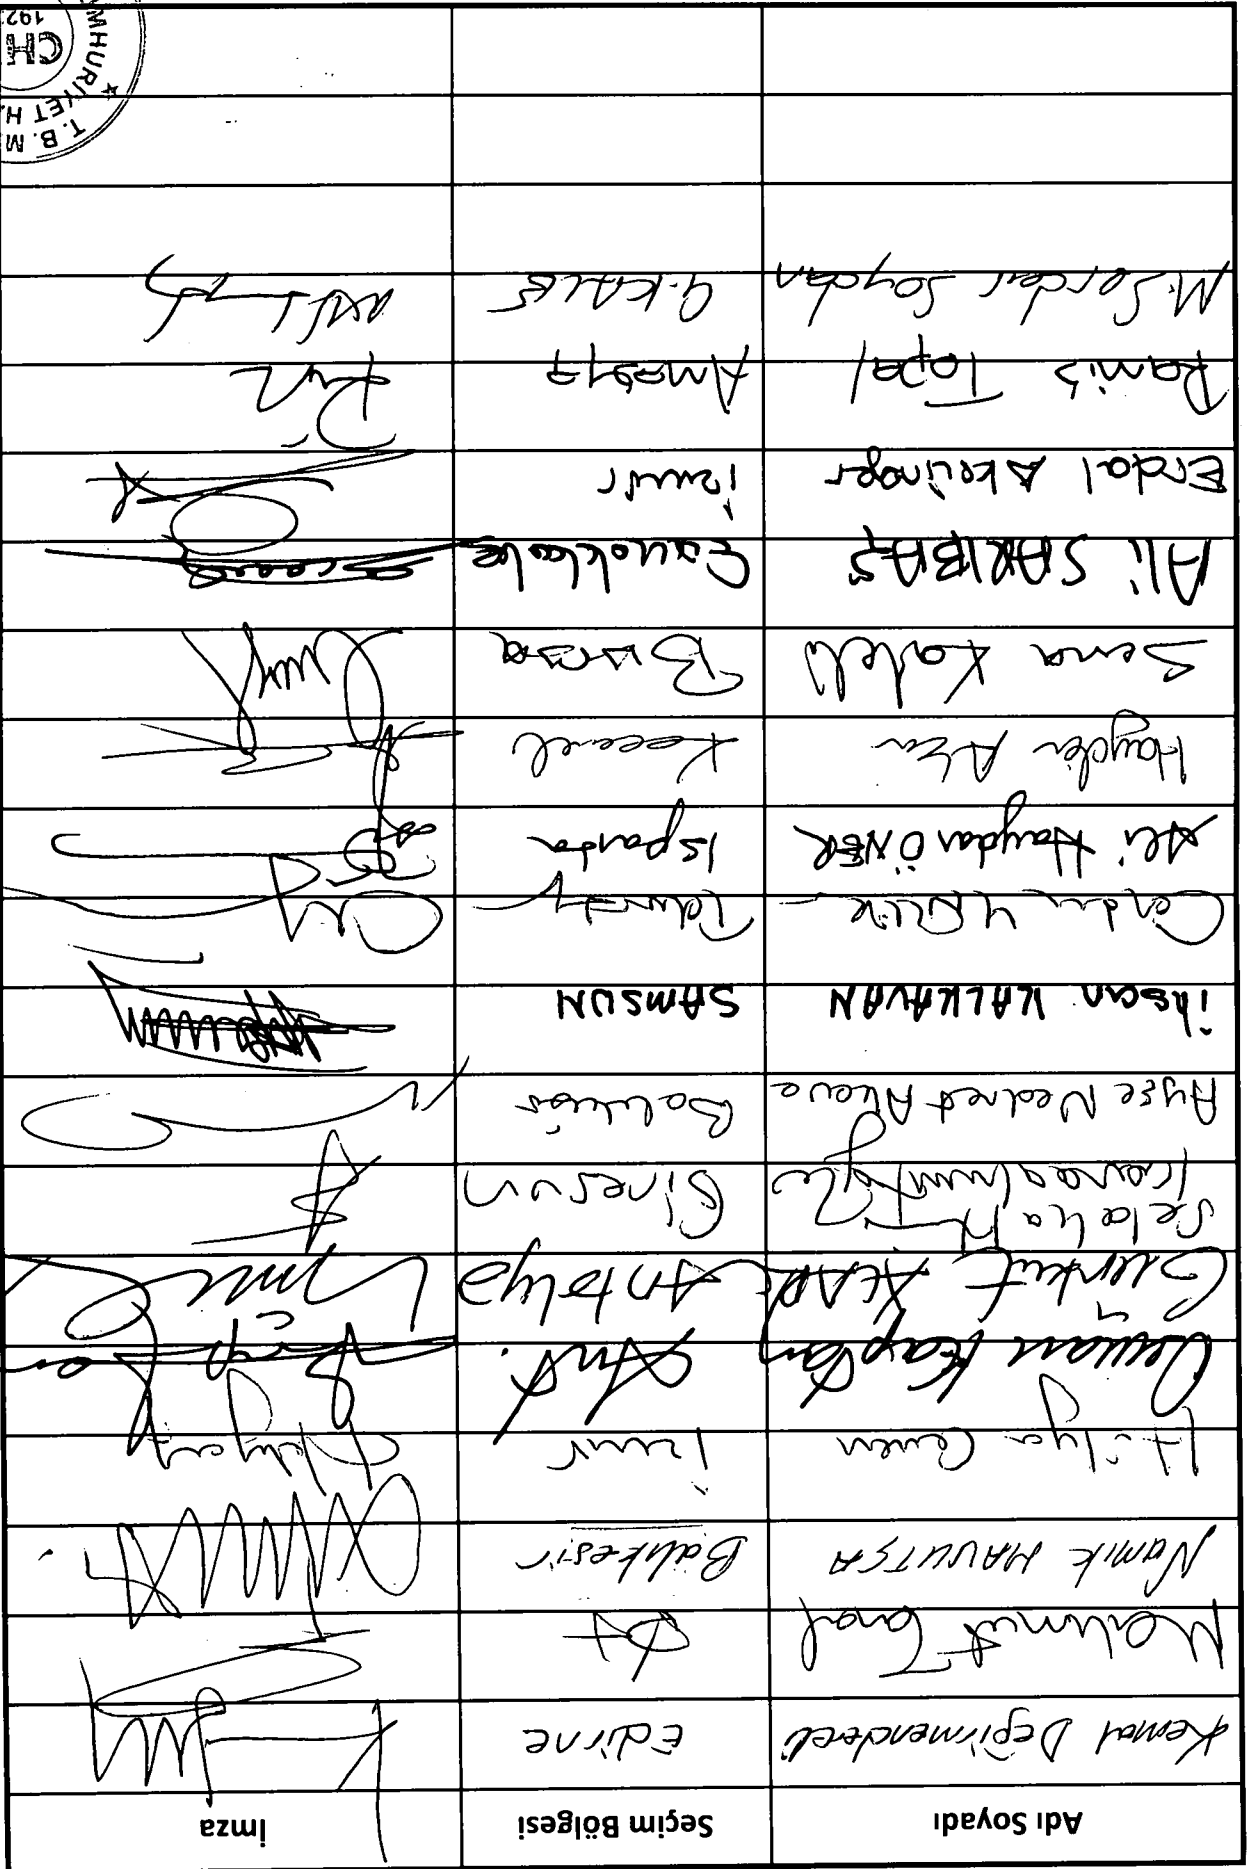 Adı Soyadı Seçim Bölgesi İmza
Kemal Değirmendereli Edirne
Mahmut Tanal İst
Namık HAVUTÇA Balıkesir
Hülya Güven İzmir
Osman Kaptan Ant.
Gürkut ACAR Antalya
Selahattin
Karaahmetoğlu Giresun
Ayşe Nedret Akova Balıkesir
İhsan KALKAVAN SAMSUN
Candan YÜCEER Tekirdağ
Ali Haydar ÖNER Isparta
Haydar Akar Kocaeli
Sena Kaleli Bursa
Ali SARIBAŞ Çanakkale
Erdal Aksünger İzmir
Ramis Topal Amasya
M. Serdar Soydan Ç.KALE
T.B.M.
MHURİYET H.
CH
192